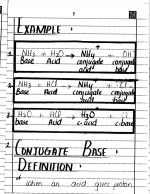 EXAMPLE :
1. NH₃ + H₂O → NH₄⁺ + OH⁻
Base Acid conjugate acid conjugate base
2. NH₃ + HCl → NH₄⁺ + Cl⁻
Base Acid conjugate conjugate
3. H₂O + HCl → H₃O + Cl⁻
Base Acid c. acid c. base
CONJUGATE BASE :
DEFINITION :
when an acid gives proton